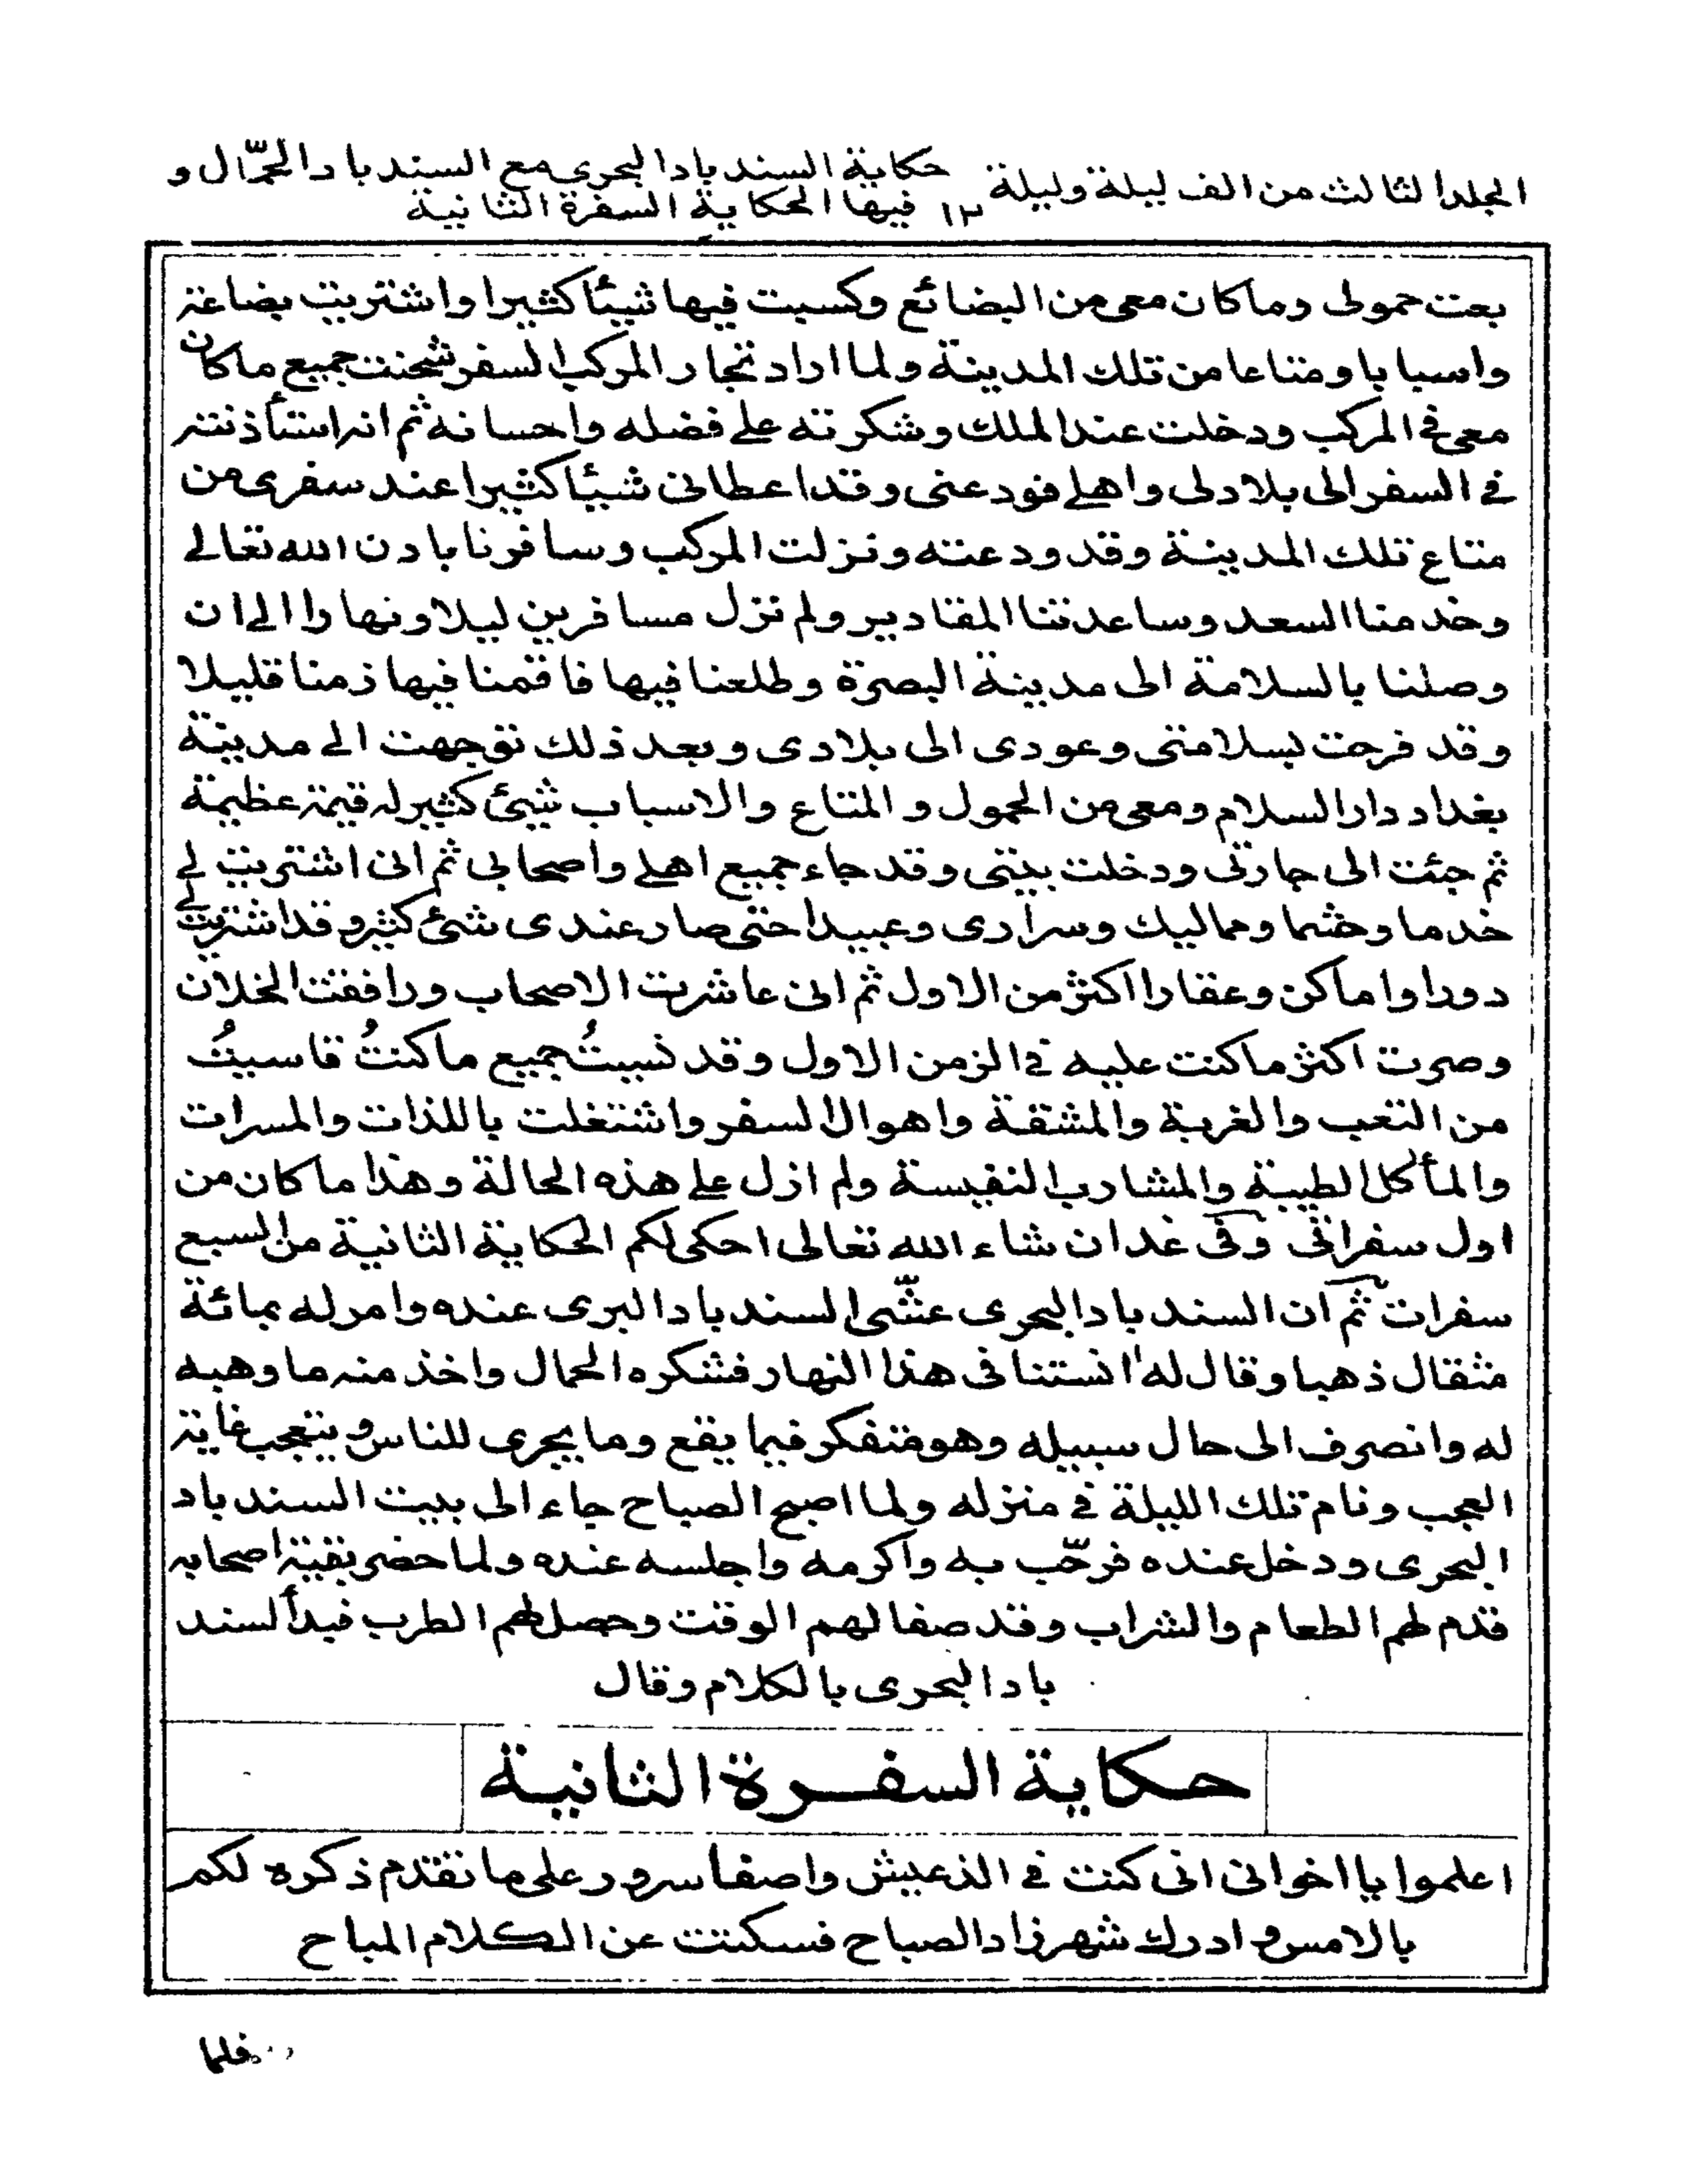 المجلد الثالث من الف ليلة وليلة ١٣ حكاية السندباد البحرى مع السندباد الحمّال و
فيها الحكاية السفرة الثانية
بعت حمولى وما كان معى من البضائع وكسبت فيها شيئا كثيرا واشتريت بضاعة
واسبابا ومتاعا من تلك المدينة ولما اراد تجار المركب السفر شحنت جميع ما كان
معى فى المركب ودخلت عند الملك وشكرته على فضله واحسانه ثم انه استأذنته
فى السفر الى بلادى واهلى فودعنى وقد اعطانى شيئا كثيرا عند سفرى من
متاع تلك المدينة وقد ودعته ونزلت المركب وسافرنا باذن الله تعالى
وخدمنا السعد وساعدتنا المقادير ولم نزل مسافرين ليلا ونهارا الى ان
وصلنا بالسلامة الى مدينة البصرة وطلعنا فيها فاقمنا فيها زمنا قليلا
وقد فرحت بسلامتى وعودى الى بلادى وبعد ذلك توجهت الى مدينة
بغداد دار السلام ومعى من الحمول و المتاع والاسباب شيئ كثير له قيمة عظيمة
ثم جئت الى حارتى ودخلت بيتى وقد جاء جميع اهلى واصحابى ثم انى اشتريت لى
خدما وحشما ومماليك وسرارى وعبيدا حتى صار عندى شئ كثير وقد اشتريت لى
دورا واماكن وعقارا اكثر من الاول ثم انى عاشرت الاصحاب ورافقت الخلان
وصرت اكثر ما كنت عليه فى الزمن الاول وقد نسيتُ جميع ما كنتُ قاسيتُ
من التعب والغربة والمشقة واهوال السفر واشتغلت باللذات والمسرات
والمأكل الطيبة والمشارب النفيسة ولم ازل على هذه الحالة وهذا ما كان من
اول سفراتى وفى غد ان شاء الله تعالى احكى لكم الحكاية الثانية من السبع
سفرات ثم ان السندباد البحرى عشّى السندباد البرى عنده وامر له بمائة
مثقال ذهبا وقال له انستنا فى هذا النهار فشكره الحمال واخذ منه ما وهبه
له وانصرف الى حال سبيله وهو متفكر فيما يقع وما يجرى للناس ويتعجب غاية
العجب ونام تلك الليلة فى منزله ولما اصبح الصباح جاء الى بيت السندباد
البحرى ودخل عنده فرحّب به واكرمه واجلسه عنده ولما حضر بقية اصحابه
قدم لهم الطعام والشراب وقد صفا لهم الوقت وحصل لهم الطرب فبدأ السند
باد البحرى بالكلام وقال
حكاية السفرة الثانية
اعلموا يا اخوانى انى كنت فى الذ عيش واصفا سرور على ما تقدم ذكره لكم
بالامس و ادرك شهرزاد الصباح فسكتت عن الكلام المباح
فلما